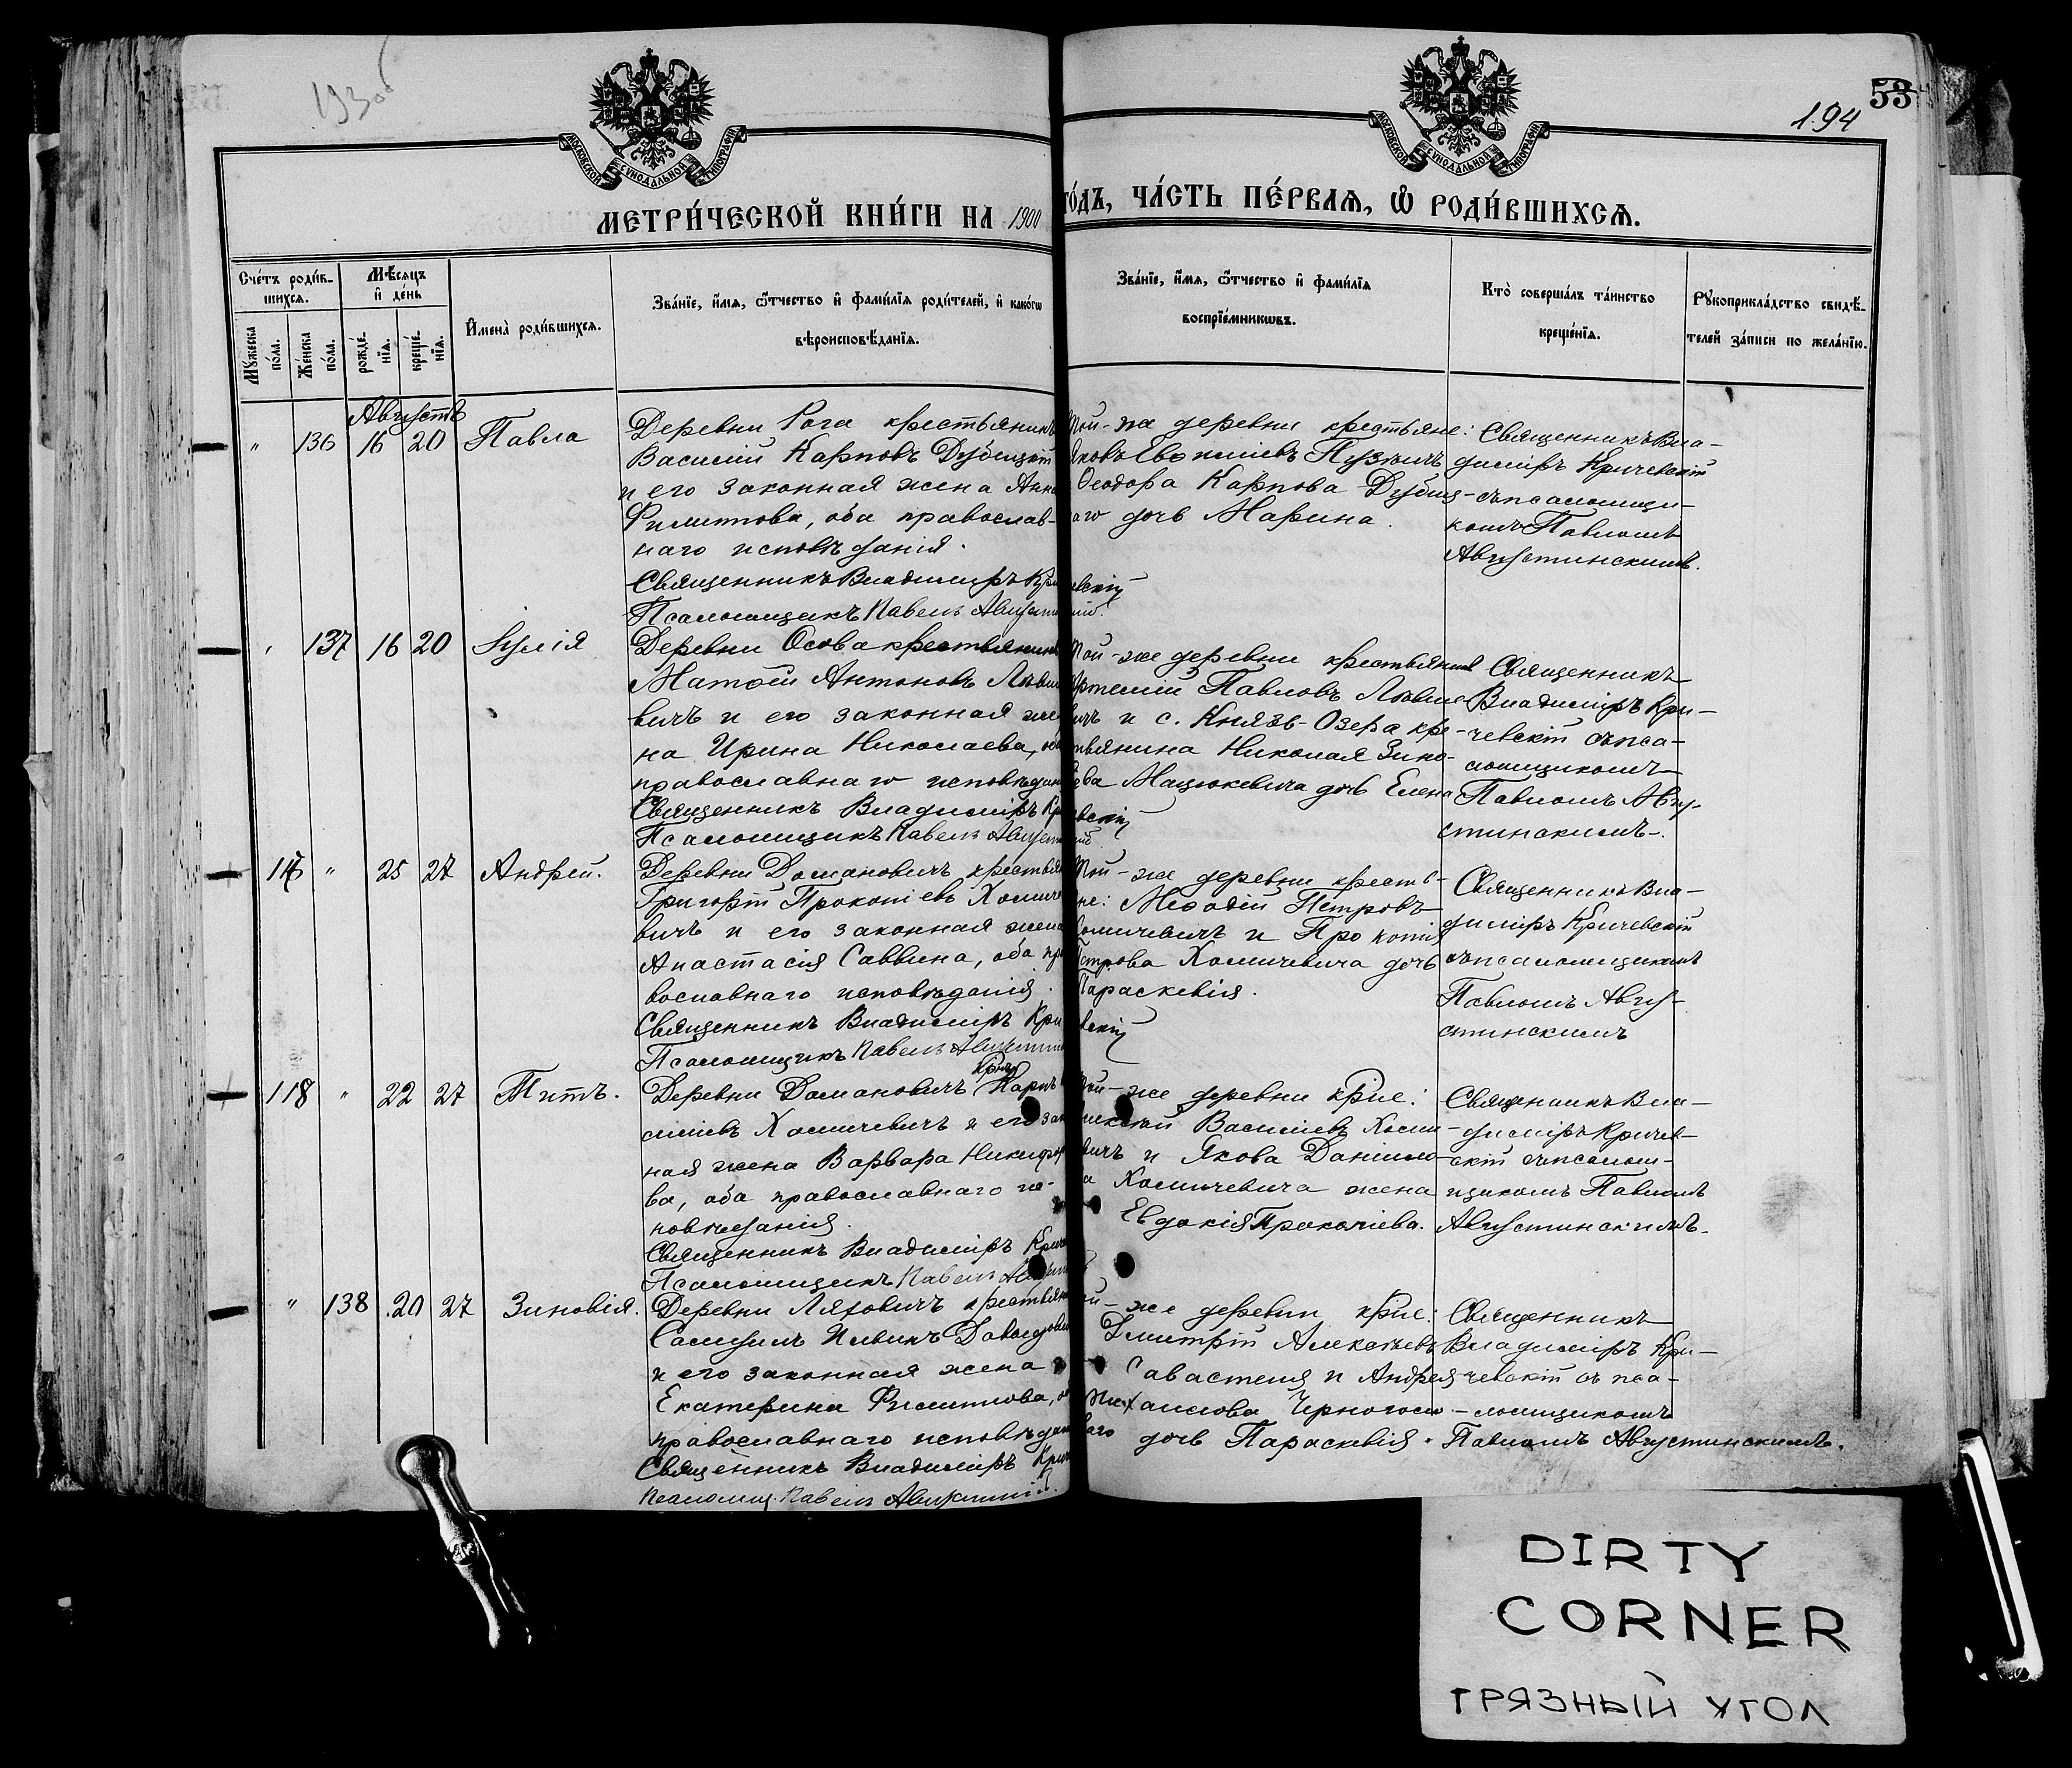 193 об
194
53
МОСКОВСКОЙ СУНОДАЛЬНОЙ ТИПОГРАФІИ
МОСКОВСКОЙ СУНОДАЛЬНОЙ ТИПОГРАФІИ
МЕТРИ́ЧЕСКОЙ КНИ́ГИ НА 1900 ГО́ДЪ, ЧА́СТЬ ПЕ́РВАѦ, Ѽ РОДИ́ВШИХСѦ.
Сче́тъ роди́в-
шихсѧ.
Мѣсѧцъ
и҆ де́нь
Мꙋжеска
по́ла.
Же́нска
по́ла.
рожде́-
нїѧ.
креще́-
нїѧ.
И҆мена̀ роди́вшихсѧ.
Зва́нїе, и҆́мѧ, ѻ҆́тчество и҆ фами́лїѧ роди́телей, и҆ како́гѡ
вѣроисповѣ́данїѧ.
Зва́нїе, и҆́мѧ, ѻ҆́тчество и҆ фами́лїѧ
воспрїе́мникѡвъ.
Кто̀ соверша́лъ та́инство
креще́нїѧ.
Рꙋкоприкла́дство свидѣ́-
телей за́писи по жела́нїю.
Августъ
" 136 16 20 Павла
Деревни Рога крестьянинъ
Василій Карповъ Дубицкій
и его законная жена Анна
Филиппова, оба православ-
наго исповѣданія.
Священникъ Владиміръ Кричевскій
Псаломщикъ Павелъ Августинскій.
Той-же деревни крестьяне:
Яковъ Пузевичъ
Ѳеодора Карпова Дубиц-
аго дочь Марина.
Священникъ Вла-
диміръ Кричевскій
съ псаломщи-
комъ Павломъ
Августинскимъ.
" 137 16 20 Іулія
Деревни Осова крестьянинъ
Матѳій Антоновъ Левке-
вичъ и его законная же-
на Ирина Николаева, оба
православнаго исповѣданія
Священникъ Владиміръ Кричевскій
Псаломщикъ Павелъ Августинскій
Той-же деревни крестьянинъ
Артемій Павловъ
вичъ и с. Князь-Озера кре-
стьянина Николая Зино-
ева Мацюкевича дочь Елена
Священникъ
Владиміръ Кри-
чевскій съ пса-
ломщикомъ
Павломъ Авгу-
стинскимъ.
117 " 25 27 Андрей.
Деревни Доманович крестьянинъ
Григорій Прокопіевъ Хомиче-
вичъ и его законная жена
Анастасія Саввина, оба пра-
вославнаго исповѣданія.
Священникъ Владиміръ Кричевскій
Псаломщикъ Павелъ Августинскій
Той-же деревни кресть-
не: Меѳодій Петровъ
Хомичевичъ и Прокопія
Петрова Хомичевича дочь
Параскевія.
Священникъ Вла-
диміръ Кричевскій
съ псаломщикомъ
Павломъ Авгу-
стинскимъ
118 " 22 27 Титъ.
Деревни Доманович
Хомичевичъ и его закон-
ная жена Варвара Никифоро-
ва, оба православнаго ис-
повѣданія.
Священникъ Владиміръ Кричевскій
Псаломщикъ Павелъ Августинскій
Той-же деревни кр-не:
Алексѣй Васильевъ Хоми-
вичъ и Якова Данило-
ва Хомичевича жена
Евдокія Прокопіева.
Священникъ Вла-
диміръ Кричев-
скій съ псалом-
щикомъ Павломъ
Августинскимъ.
" 138 20 27 Зиновія.
Деревни Ляховичъ крестьянинъ
Самуилъ Давыдов
и его законная жена
Екатерина Филиппова, оба
православнаго исповѣданія
Священникъ Владиміръ Кричевскій
Псаломщ. Павелъ Августинскій.
Той-же деревни кр-не:
Дмитрій Алексѣевъ
Савастеня и Андрея
Михайлова Черноголо-
ваго дочь Параскевія.
Священникъ
Владиміръ Кри-
чевскій съ пса-
ломщикомъ
Павломъ Августинскимъ.
DIRTY
CORNER
ГРЯЗНЫЙ УГОЛ